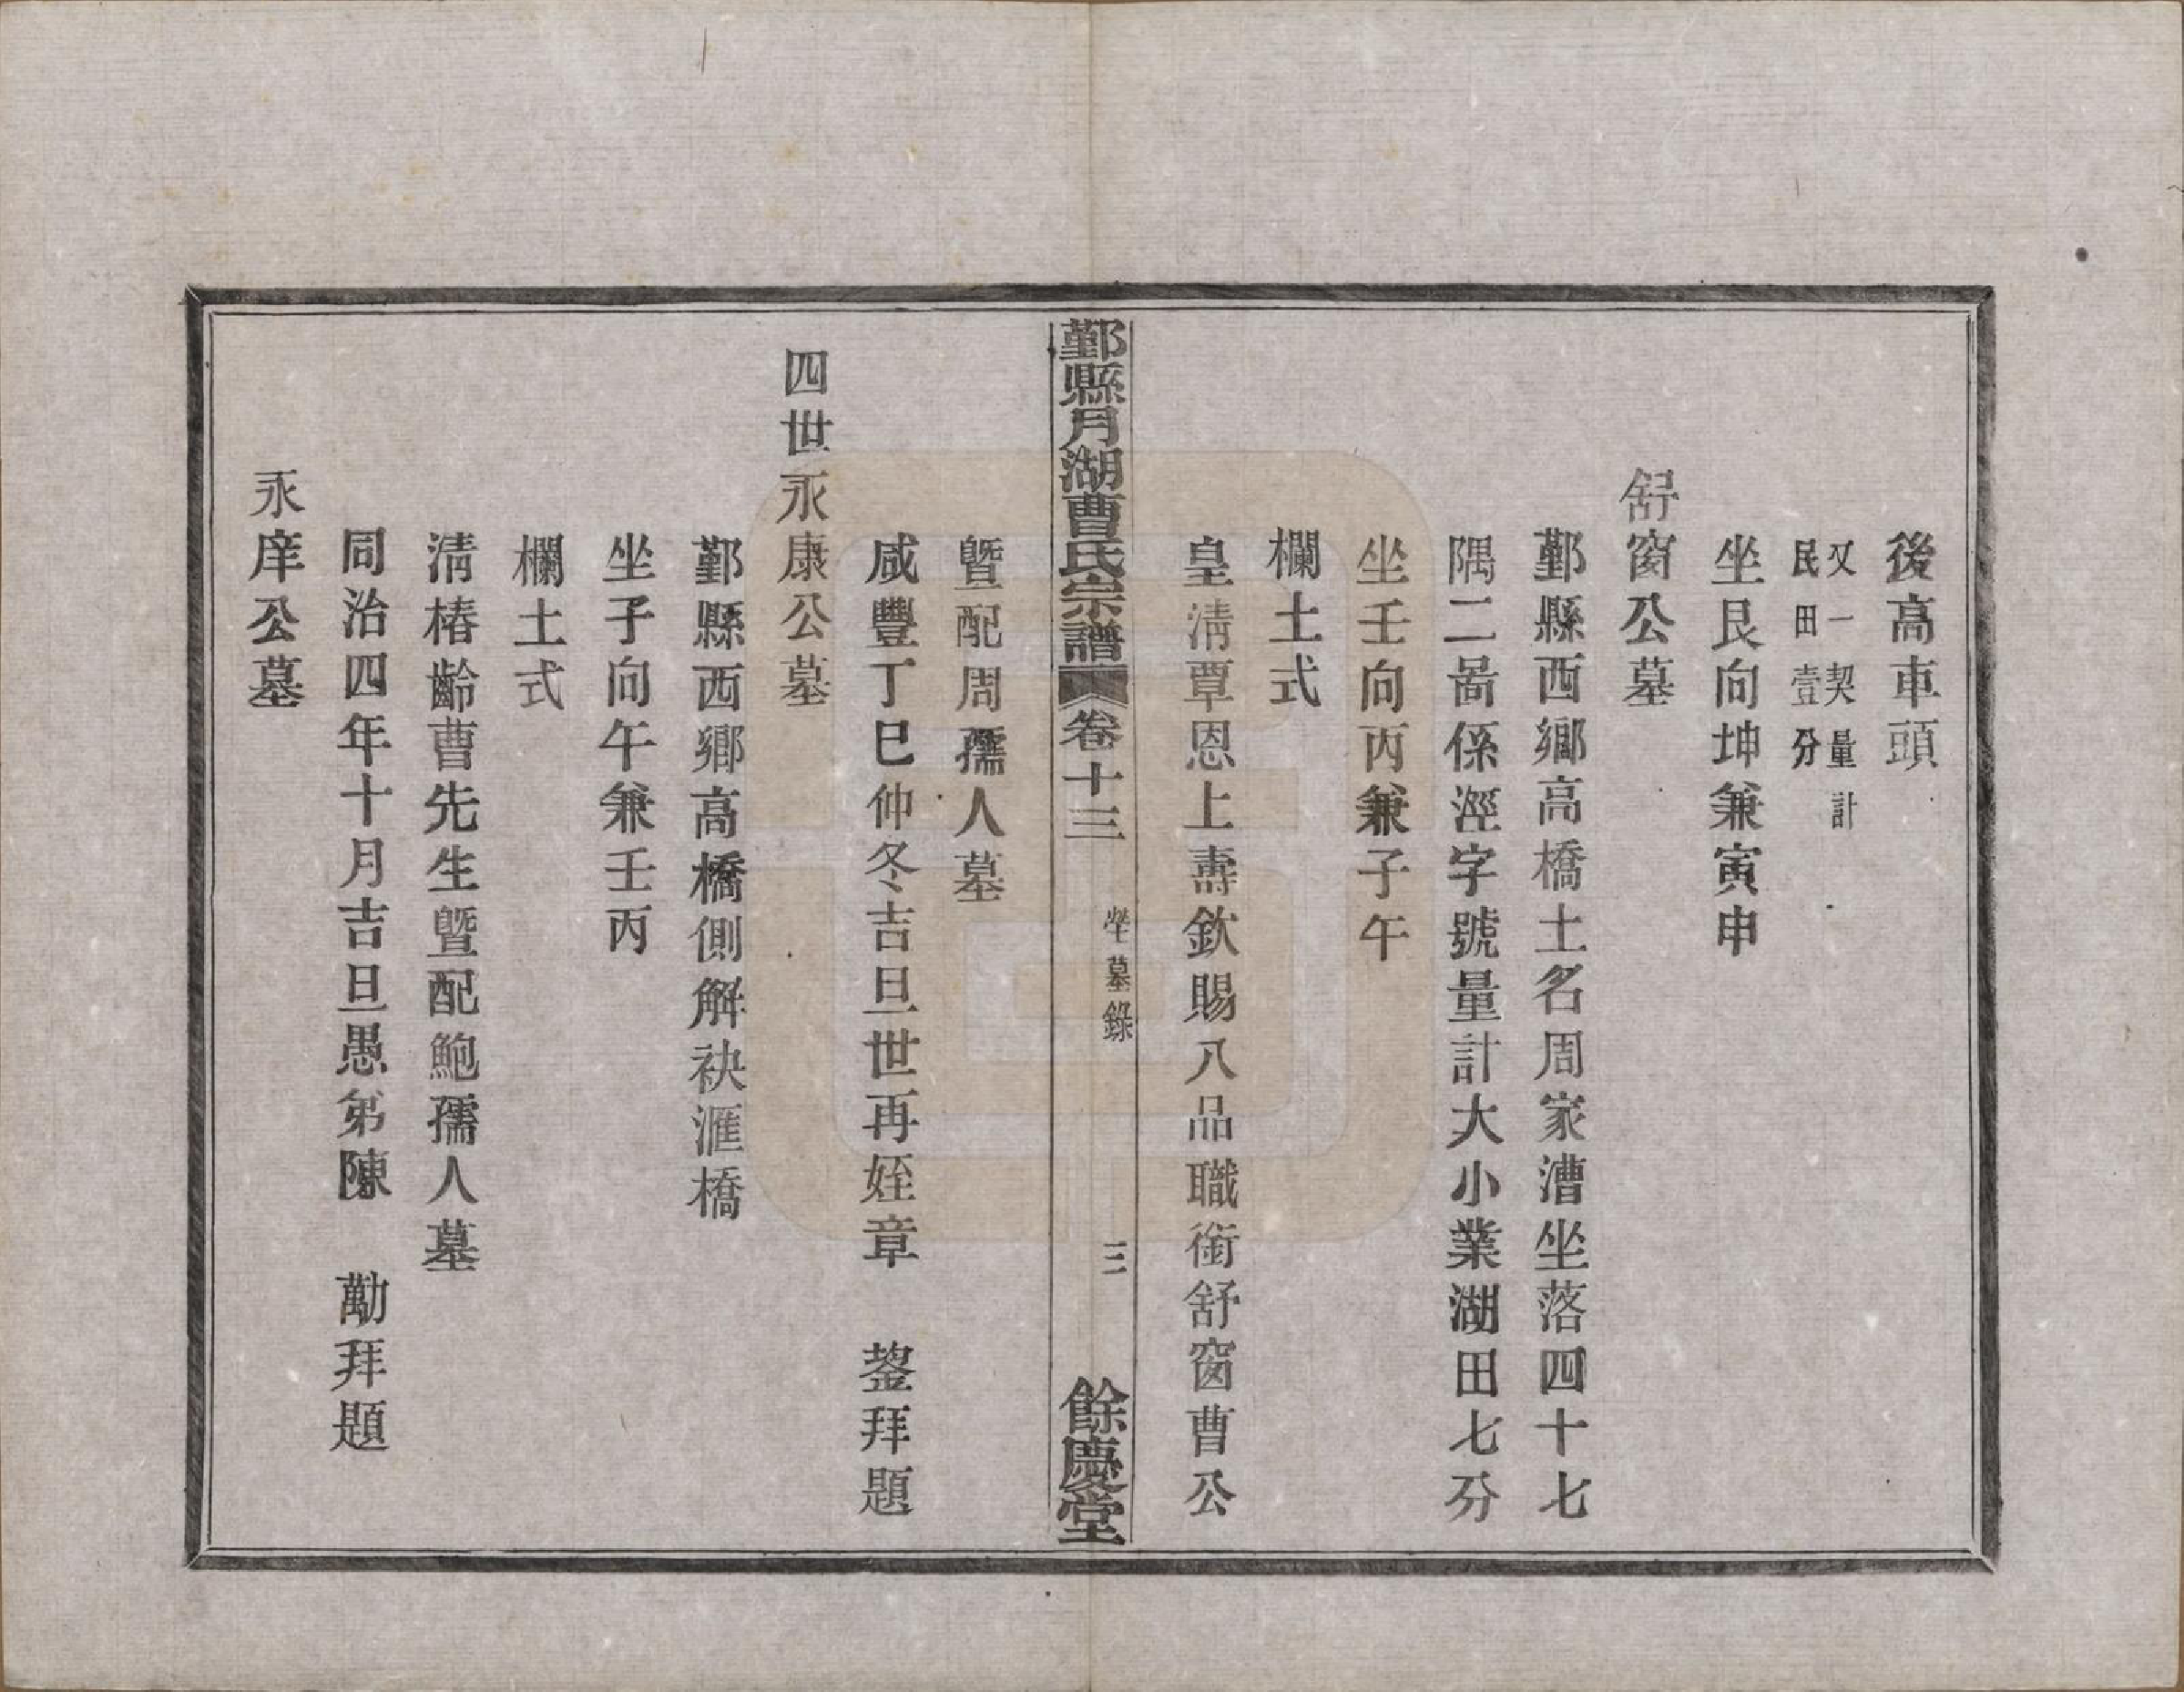 後高車頭
又一契量計
民田壹分
坐艮向坤兼寅申
舒窗公墓
鄞縣西鄉高橋土名周家漕坐落四十七
隅二啚係涇字號量計大小業湖田七分
坐壬向丙兼子午
欄土式
皇淸覃恩上壽欽賜八品職銜舒窗曹公
鄞縣月湖曹氏宗譜 卷十三 塋墓錄 三 餘慶堂
曁配周孺人墓
咸豐丁巳仲冬吉旦世再姪章 鋆拜題
四世永康公墓
鄞縣西鄉高橋側解袂滙橋
坐子向午兼壬丙
欄土式
淸椿齡曹先生曁配鮑孺人墓
同治四年十月吉旦愚弟陳 勱拜題
永庠公墓